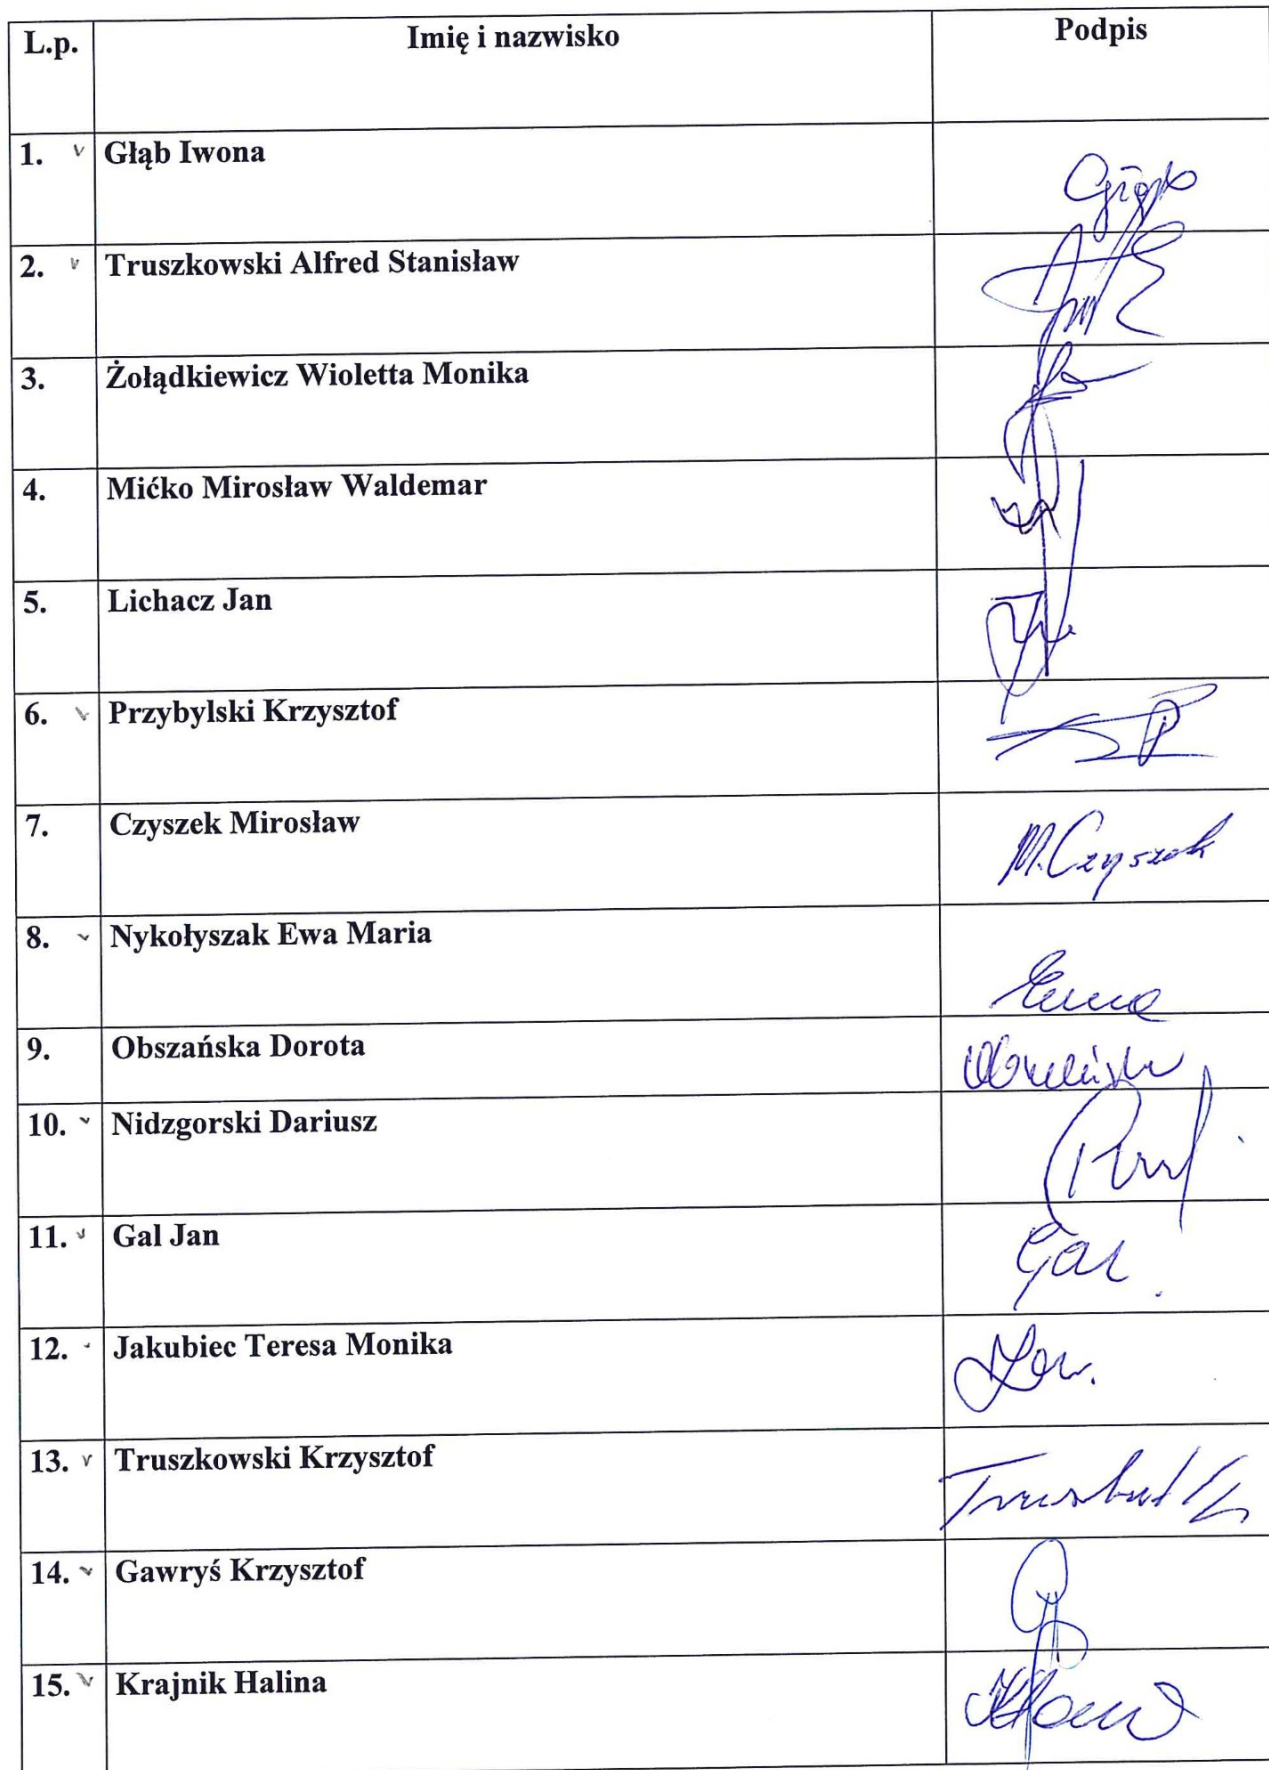 L.p. Imię i nazwisko Podpis
1. v Głąb Iwona Głąb
2. v Truszkowski Alfred Stanisław
3. Żołądkiewicz Wioletta Monika
4. Mićko Mirosław Waldemar
5. Lichacz Jan
6. v Przybylski Krzysztof
7. Czyszek Mirosław M.Czyszek
8. v Nykołyszak Ewa Maria
9. Obszańska Dorota
10. v Nidzgorski Dariusz
11. v Gal Jan Gal.
12. Jakubiec Teresa Monika
13. v Truszkowski Krzysztof
14. v Gawryś Krzysztof
15. v Krajnik Halina